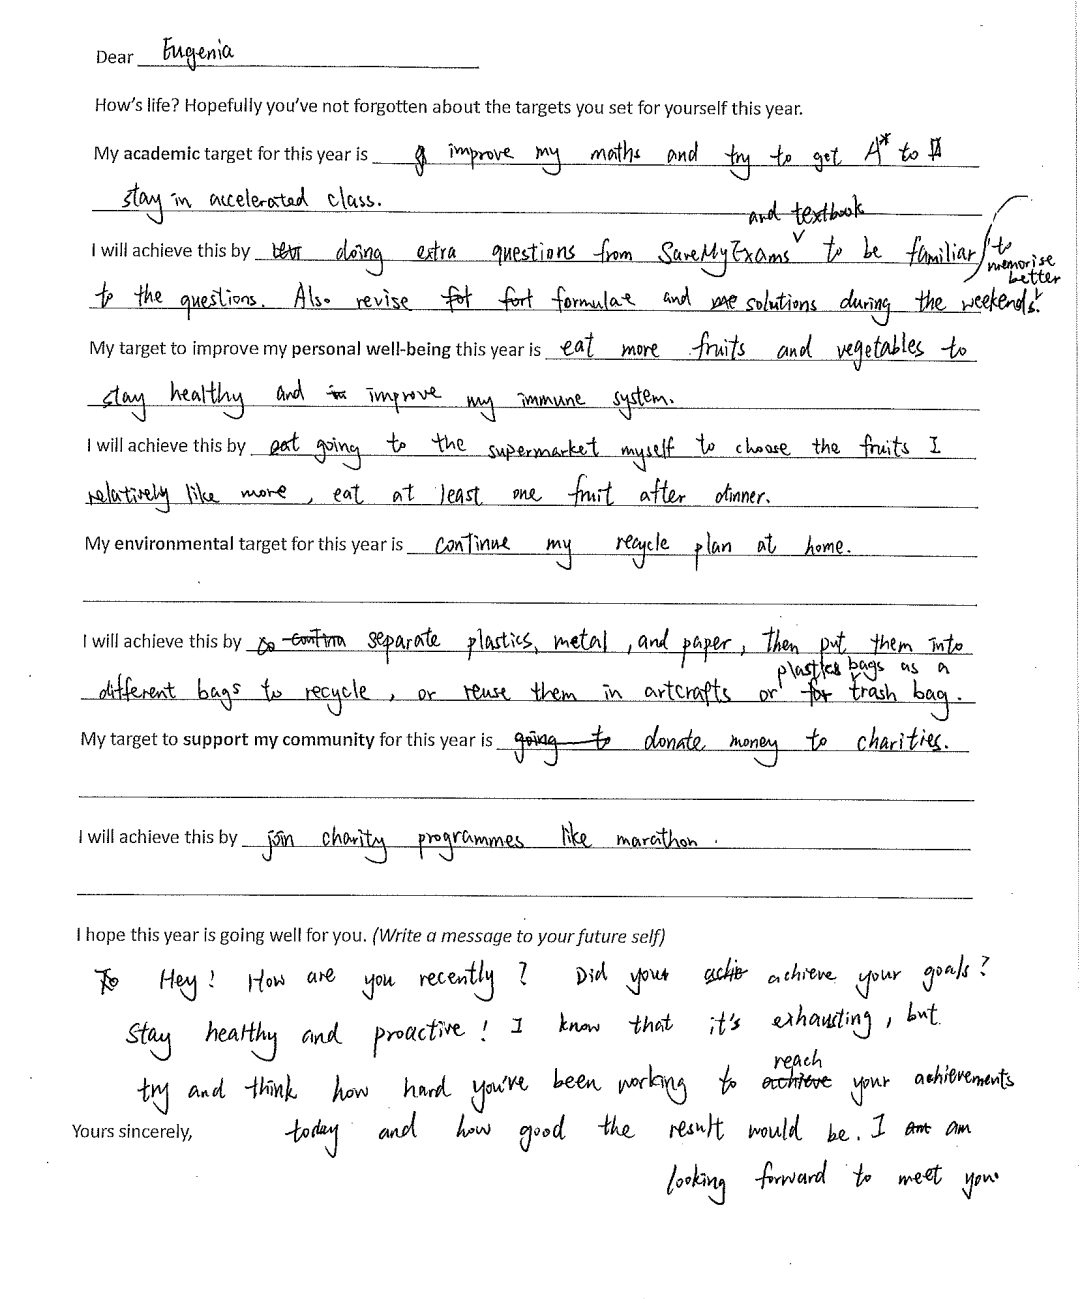 Dear Eugenia
How's life? Hopefully you've not forgotten about the targets you set for yourself this year.
My academic target for this year is improve my maths and try to get A* to
stay in accelerated class.
and textbook
I will achieve this by doing extra questions from SaveMyExams to be familiar
to memorise better
to the questions. Also revise fot fort formulae and me solutions during the weekends.
My target to improve my personal well-being this year is eat more fruits and vegetables to
stay healthy and in improve my immune system.
I will achieve this by eat going to the supermarket myself to choose the fruits I
relatively like more, eat at least one fruit after dinner.
My environmental target for this year is continue my recycle plan at home.
I will achieve this by separate plastics, metal, and paper, then put them into
plastics bags as a
different bags to recycle, or reuse them in artcrafts or for trash bag.
My target to support my community for this year is going to donate money to charities.
I will achieve this by join charity programmes like marathon.
I hope this year is going well for you. (Write a message to your future self)
To Hey! How are you recently? Did your achie achieve your goals?
Stay healthy and proactive! I know that it's exhausting, but
reach
try and think how hard you've been working to achieve your achievements
Yours sincerely, today and how good the result would be. I am
looking forward to meet you.